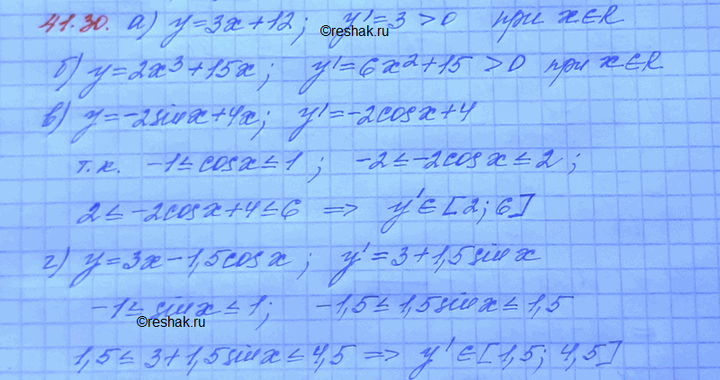 41.30. а) y=3x+12; y'=3>0 при x∈R
©reshak.ru
б) y=2x³+15x; y'=6x²+15>0 при x∈R
в) y=-2sinx+4x; y'=-2cosx+4
т.к. -1≤cosx≤1; -2≤-2cosx≤2;
2≤-2cosx+4≤6 => y'∈[2;6]
г) y=3x-1,5cosx; y'=3+1,5sinx
-1≤sinx≤1; -1,5≤1,5sinx≤1,5
©reshak.ru
1,5≤3+1,5sinx≤4,5 => y'∈[1,5; 4,5]